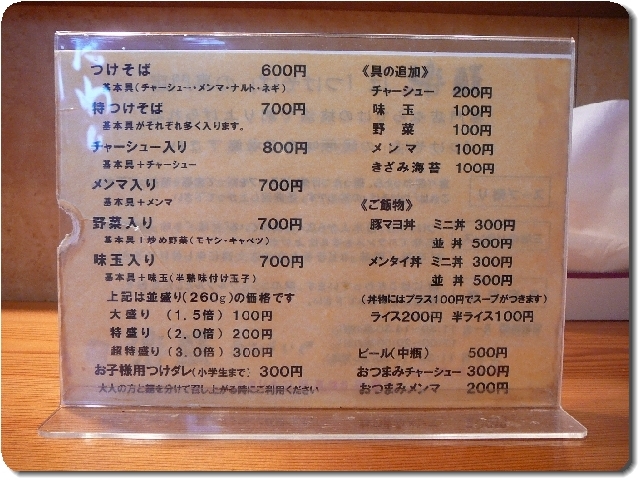 つけそば 600円
基本具(チャーシュー・メンマ・ナルト・ネギ)
特つけそば 700円
基本具がそれぞれ多く入ります。
チャーシュー入り 800円
基本具+チャーシュー
メンマ入り 700円
基本具+メンマ
野菜入り 700円
基本具+炒め野菜(モヤシ・キャベツ)
味玉入り 700円
基本具+味玉(半熟味付け玉子)
上記は並盛り(260g)の価格です
大盛り (1.5倍) 100円
特盛り (2.0倍) 200円
超特盛り (3.0倍) 300円
お子様用つけダレ(小学生まで) 300円
大人の方と麺を分けて召し上がる時にご利用ください
《具の追加》
チャーシュー 200円
味玉 100円
野菜 100円
メンマ 100円
きざみ海苔 100円
《ご飯物》
豚マヨ丼 ミニ丼 300円
並丼 500円
メンタイ丼 ミニ丼 300円
並丼 500円
(丼物にはプラス100円でスープがつきます)
ライス200円 半ライス100円
ビール(中瓶) 500円
おつまみチャーシュー 300円
おつまみメンマ 200円